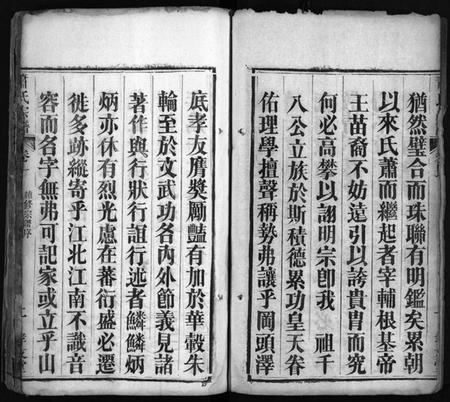 猶然璧合而珠聯有明鑑矣累朝
以來氏蕭而繼起者宰輔根基帝
王苗裔不妨遠引以誇貴胄而究
何必高攀以謝明宗卽我 祖千
八公立族於斯積德累功皇天眷
佑理學擅聲稱勢弗讓乎岡頭澤
底孝友膺獎勵豔有加於華轂朱
輪至於文武功名內外節義見諸
著作與行狀行誼行述者鱗鱗炳
炳亦休有烈光慮在蕃衍盛必遷
徙多跡縱寄乎江北江南不識音
容而名字無弗可記家或立乎山
蕭氏宗譜